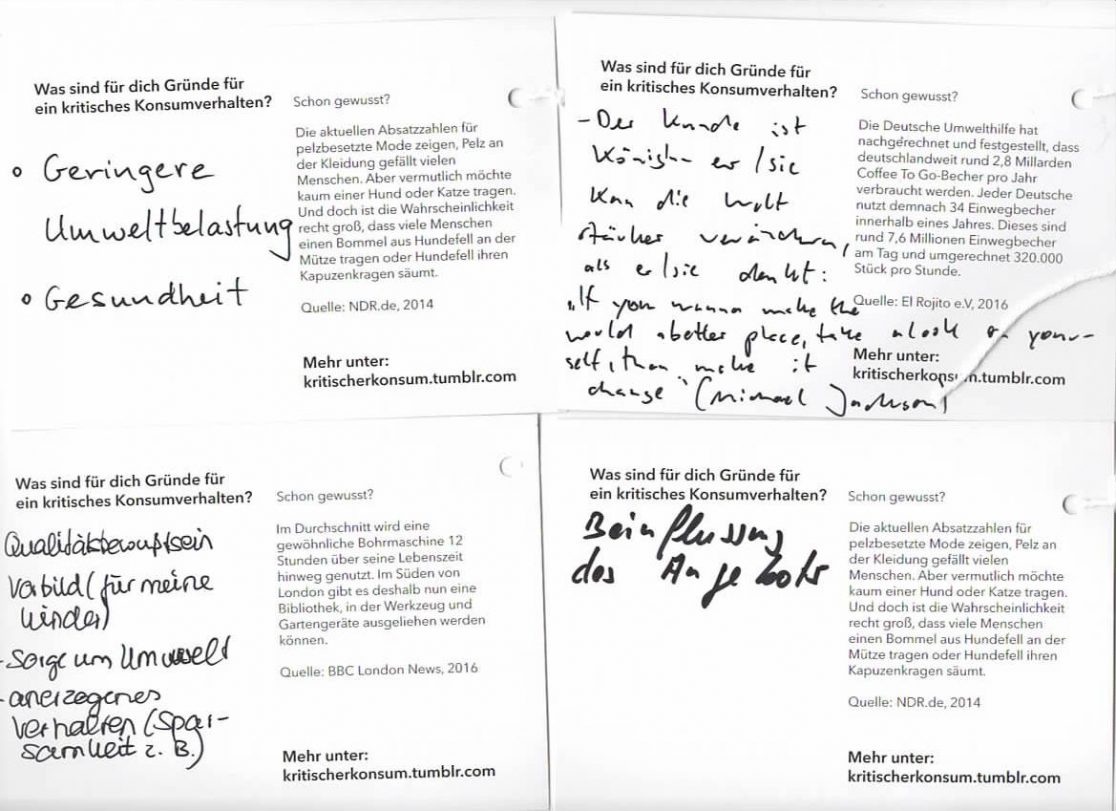 Was sind für dich Gründe für
ein kritisches Konsumverhalten?
• Geringere
Umweltbelastung
• Gesundheit
Schon gewusst?
Die aktuellen Absatzzahlen für
pelzbesetzte Mode zeigen, Pelz an
der Kleidung gefällt vielen
Menschen. Aber vermutlich möchte
kaum einer Hund oder Katze tragen.
Und doch ist die Wahrscheinlichkeit
recht groß, dass viele Menschen
einen Bommel aus Hundefell an der
Mütze tragen oder Hundefell ihren
Kapuzenkragen säumt.
Quelle: NDR.de, 2014
Mehr unter:
kritischerkonsum.tumblr.com
Was sind für dich Gründe für
ein kritisches Konsumverhalten?
- Der Kunde ist
König - er/sie
kann die Welt
stärker verändern,
als er/sie denkt:
"If you wanna make the
world a better place, take a look on your-
self, than make it
change" (Michael Jackson)
Schon gewusst?
Die Deutsche Umwelthilfe hat
nachgerechnet und festgestellt, dass
deutschlandweit rund 2,8 Millarden
Coffee To Go-Becher pro Jahr
verbraucht werden. Jeder Deutsche
nutzt demnach 34 Einwegbecher
innerhalb eines Jahres. Dieses sind
rund 7,6 Millionen Einwegbecher
am Tag und umgerechnet 320.000
Stück pro Stunde.
Quelle: El Rojito e.V, 2016
Mehr unter:
kritischerkonsum.tumblr.com
Was sind für dich Gründe für
ein kritisches Konsumverhalten?
Qualitätsbewußtsein
Vorbild (für meine
Kinder)
- Sorge um Umwelt
- anerzogenes
Verhalten (Spar-
samkeit z. B.)
Schon gewusst?
Im Durchschnitt wird eine
gewöhnliche Bohrmaschine 12
Stunden über seine Lebenszeit
hinweg genutzt. Im Süden von
London gibt es deshalb nun eine
Bibliothek, in der Werkzeug und
Gartengeräte ausgeliehen werden
können.
Quelle: BBC London News, 2016
Mehr unter:
kritischerkonsum.tumblr.com
Was sind für dich Gründe für
ein kritisches Konsumverhalten?
Beinflussung
des Angebots
Schon gewusst?
Die aktuellen Absatzzahlen für
pelzbesetzte Mode zeigen, Pelz an
der Kleidung gefällt vielen
Menschen. Aber vermutlich möchte
kaum einer Hund oder Katze tragen.
Und doch ist die Wahrscheinlichkeit
recht groß, dass viele Menschen
einen Bommel aus Hundefell an der
Mütze tragen oder Hundefell ihren
Kapuzenkragen säumt.
Quelle: NDR.de, 2014
Mehr unter:
kritischerkonsum.tumblr.com